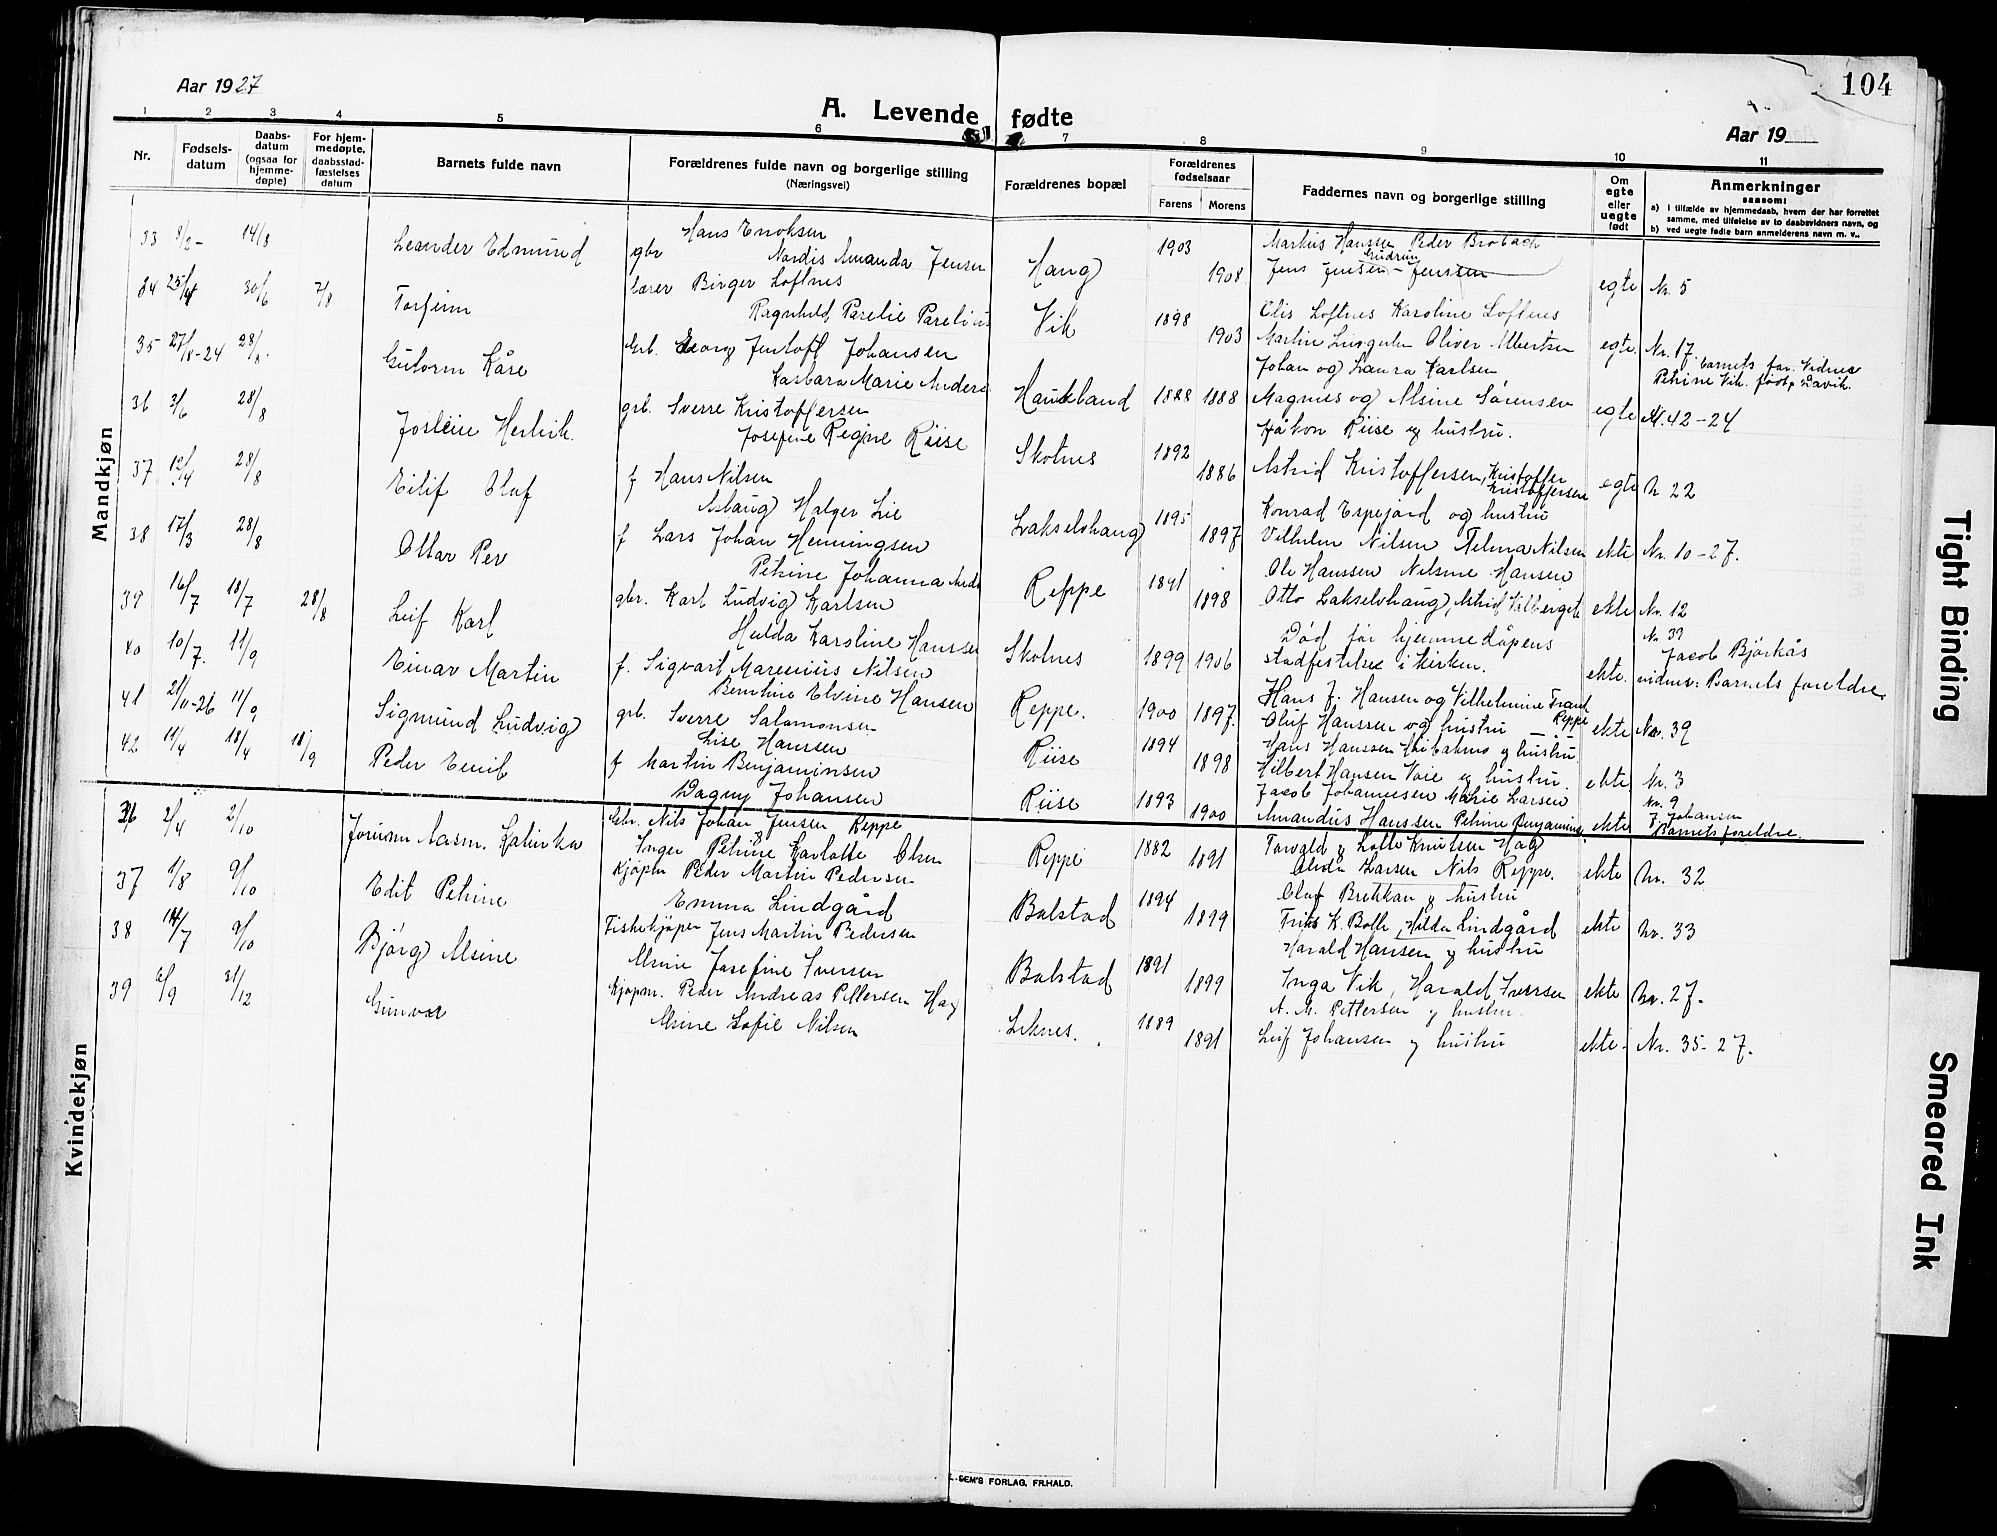 104
Aar 1927
A. Levende fødte
Aar 19
1 2 3 4 5 6 7 8 9 10 11
Nr.
Fødsels-datum
Daabs-datum (ogsaa for hjemme-døpte)
For hjem-medøpte, daabsstad-fæstelses datum
Barnets fulde navn
Forældrenes fulde navn og borgerlige stilling (Næringsvei)
Forældrenes bopæl
Forældrenes fødselsaar
Farens Morens
Faddernes navn og borgerlige stilling
Om egte eller uegte født
Anmerkninger
saasom:
a) i tilfælde av hjemmedaab, hvem der har forrettet samme, med tilføielse av to daabsvidners navn, og
b) ved uegte fødte barn anmelderens navn m. v..
Mandkjøn
33 8/2 - 14/8 Leander Edmund gbr Hans Enoksen
Nordis Amanda Jensen Haug 1903 1908 Markus Hanssen Peder Brobach
Jens Jensen - Gudrun Jenssen egte Nr. 5
34 25/4 30/6 7/8 Torfinn lærer Birger Loftnes
Ragnhild Parelie Parelius Vik 1898 1903 Olis Loftnes Karoline Loftnes
Martin Oliver Albertsen egte. Nr. 17. barnets far. Vidner
Petrine Vik
35 27/8-24 28/8. Gutorm Kåre Grb. Georg Jentoft Johansen
Kasbara Marie Anders Haukland 1888 1888 Johan og Laura Karlsen
Magnus og Alsine Sørensen egte Nr. 42-24
36 3/6 28/8 Josteire Henrik grb. Sverre Kristoffersen
Josefine Regine Riise Skotnes 1892 1886 Håkon Riise og hustru.
Astrid Kristoffersen, Kristoffer Kristoffersen egte N 22
37 12/4 28/8 Eilif Oluf f Hans Nilsen
Aslaug Halger Lie Lakselvhaug 1895 1897 Konrad Espejord og hustru
Vilhelm Nilsen Telma Nilsen ekte Nr. 10-27.
38 17/3 28/8 Ottar Per f Lars Johan Henningsen
Petrine Johanna Anders Reppe 1891 1898 Ole Hanssen Nilsine Hansen
Otto Lakselvhaug, Astrid ekte Nr. 12
39 16/7 18/7 28/8 Leif Karl gbr. Karl Ludvig Karlsen
Hulda Karoline Hanssen Skotnes 1899 1906 Død før hjemmedåpens
stadfestelse i kirken. ekte. Nr. 39
Jacob Bjørkås
vidner: Barnets foreldre.
40 10/7. 11/9 Einar Martin f. Sigvart Marenius Nilsen
Berntine Elvine Hansen Reppe. 1900 1897. Hans J. Hansen og Vilhelmine Frant Reppe
Oluf Hanssen og hustru ekte Nr. 39
41 21/11-26 11/9 Sigmund Ludvig grb. Sverre Salamonsen
Lise Hansen Riise 1894 1898 Hans Hanssen og hustru
Hilbert Hansen Voie og hustru. ekte Nr. 3
42 11/4 18/4 18/9 Peder Emil f Martin Benjaminsen
Dagny Johansen Riise 1893 1900 Jacob Johannesen Marie Larsen
Amandus Hanssen Petrine Benjamins ekte Nr. 9
J. Johansen
Barnets foreldre.
Kvindekjøn
36 2/4 2/10 Jorunn Aasm. Katinka Gbr. Nils Johan Jensen Reppe
Inger Petrine Karlotte Olsen Reppe 1882 1891 Torvald og Lotte Knutsen Hag
Alida Larsen Nils Reppe. ekte Nr. 32
37 1/8 9/10 Edit Petrine Kjøpm Peder Martin Pedersen
Emma Lindgård Balstad 1894 1899 Oluf Brekkan og hustru
Friis K. Bolle, Hilda Lindgård ekte Nr. 33
38 14/7 9/10 Bjørg Alsine Fiskekjøper Jens Martin Pedersen
Alsine Josefine Iversen Balstad 1891 1899 Harald Hansen og hustru
Inga Vik, Harald Iversen ekte Nr. 27.
39 6/9 31/12 Gunvor Kjøpm. Peder Andreas Pettersen Hag
Alsine Sofie Nilsen Leknes. 1889 1891 A. M. Pettersen og hustru.
Leif Johansen og hustru ekte. Nr. 35-27.
E. SEM'S FORLAG, FR.HALD.
Tight Binding
Smeared Ink